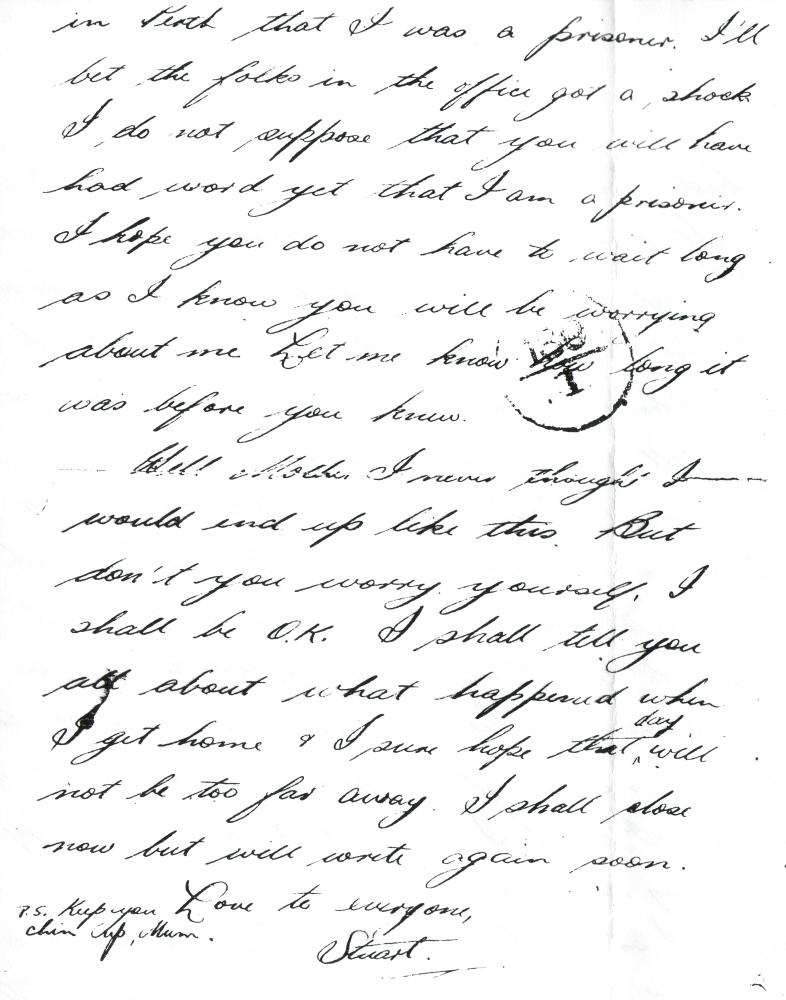 in Perth that I was a prisoner. I'll
bet the folks in the office got a shock
I do not suppose that you will have
had word yet that I am a prisoner.
I hope you do not have to wait long
as I know you will be worrying
about me Let me know how long it
was before you knew.
Well Mother I never thought I
would end up like this. But
don't you worry yourself. I
shall be O.K. I shall tell you
all about what happened when
I get home & I sure hope that day will
not be too far away. I shall close
now but will write again soon.
Love to everyone,
Stuart.
P.S. Keep your
chin up, Mum.